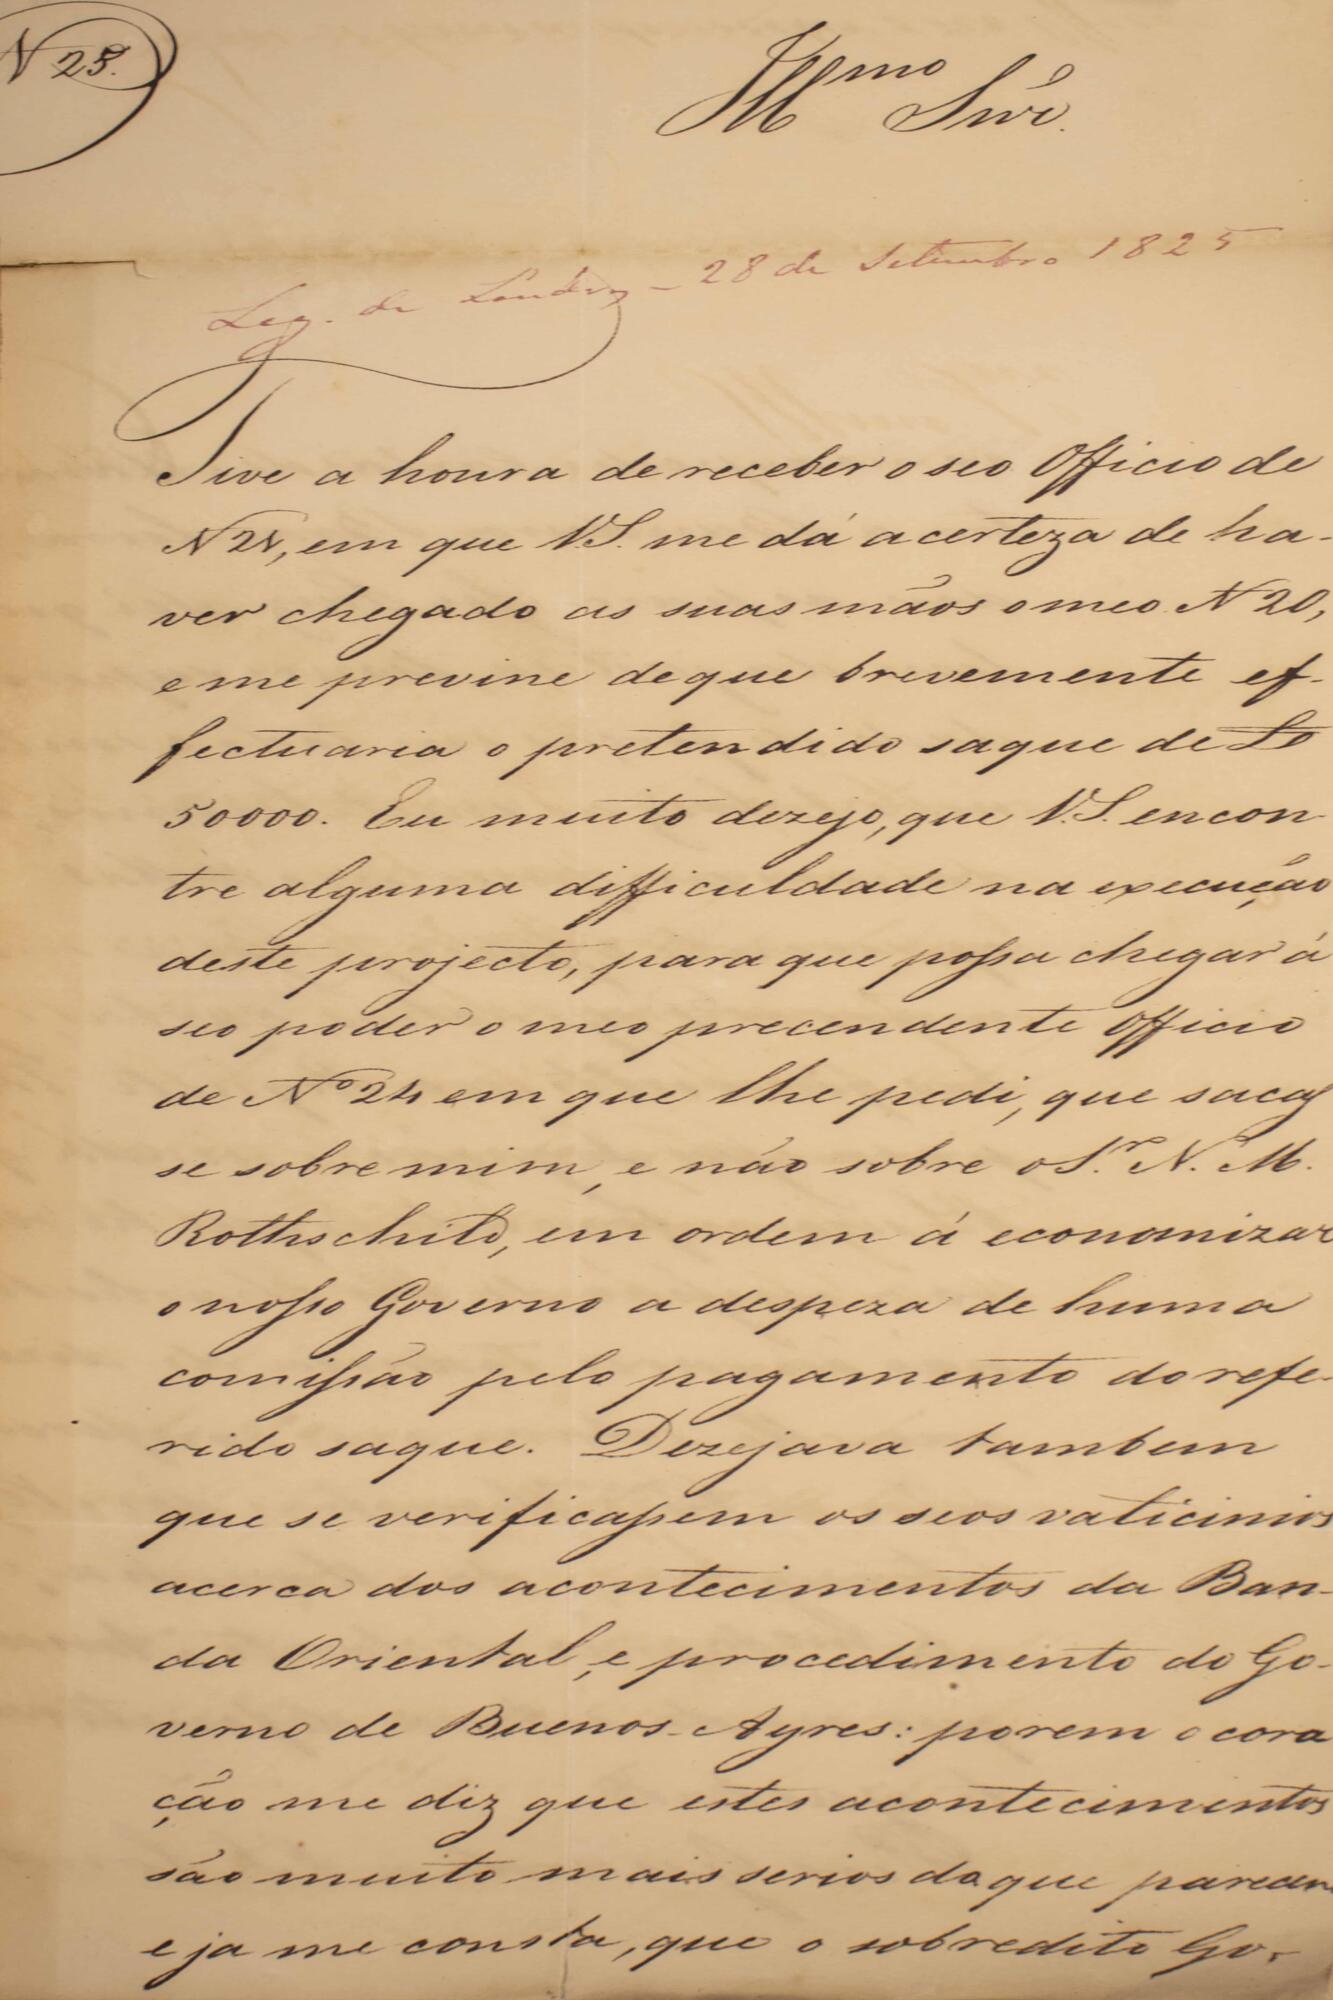 N 25.
Illmo Snr.
Leg. de Londres - 28 de Setembro 1825
Tive a honra de receber o seo Officio de
N 21, em que V.S. me dá a certeza de ha-
ver chegado as suas mãos o meo N 20,
e me previne de que brevemente ef-
fectuaria o pretendido saque de
50000. Eu muito dezejo, que V.S. encon-
tre alguma difficuldade na execução
deste projecto, para que possa chegar á
seo poder o meo precendente Officio
de Nº 24 em que lhe pedi, que sacas
se sobre mim, e não sobre o Sr. N. M.
Rothschild, em ordem á economizar
o nosso Governo a despeza de huma
comissão pelo pagamento do refe-
rido saque. Dezejava tambem
que se verificassem os seos vaticinios
acerca dos acontecimentos da Ban-
da Oriental, e procedimento do Go-
verno de Buenos-Ayres: porem o cora
ção me diz que estes acontecimentos
são muito mais serios do que parecem
e ja me consta, que o sobredito Go-